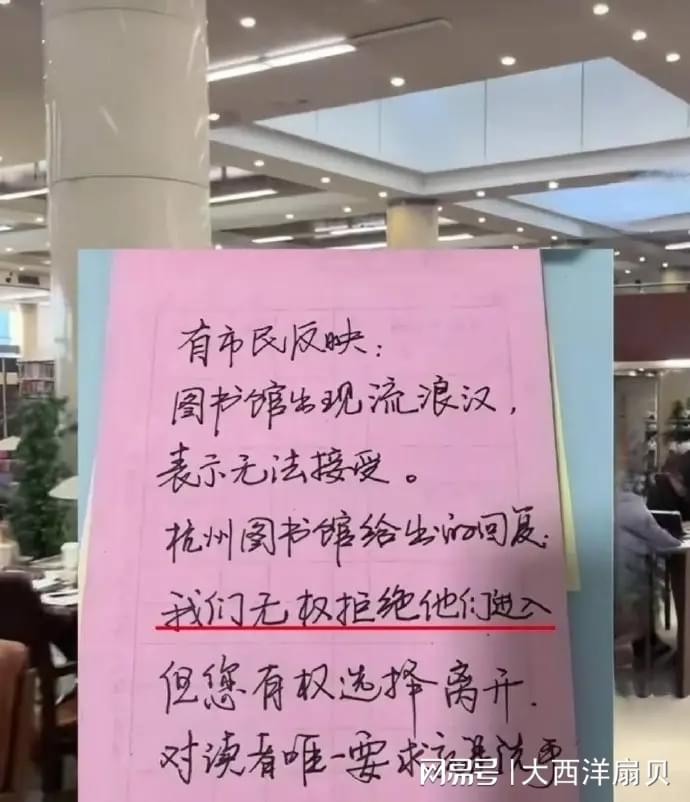 有市民反映：
图书馆出现流浪汉，
表示无法接受。
杭州图书馆给出的回复：
我们无权拒绝他们进入
但您有权选择离开．
对读者唯一要求
网易号 | 大西洋扇贝